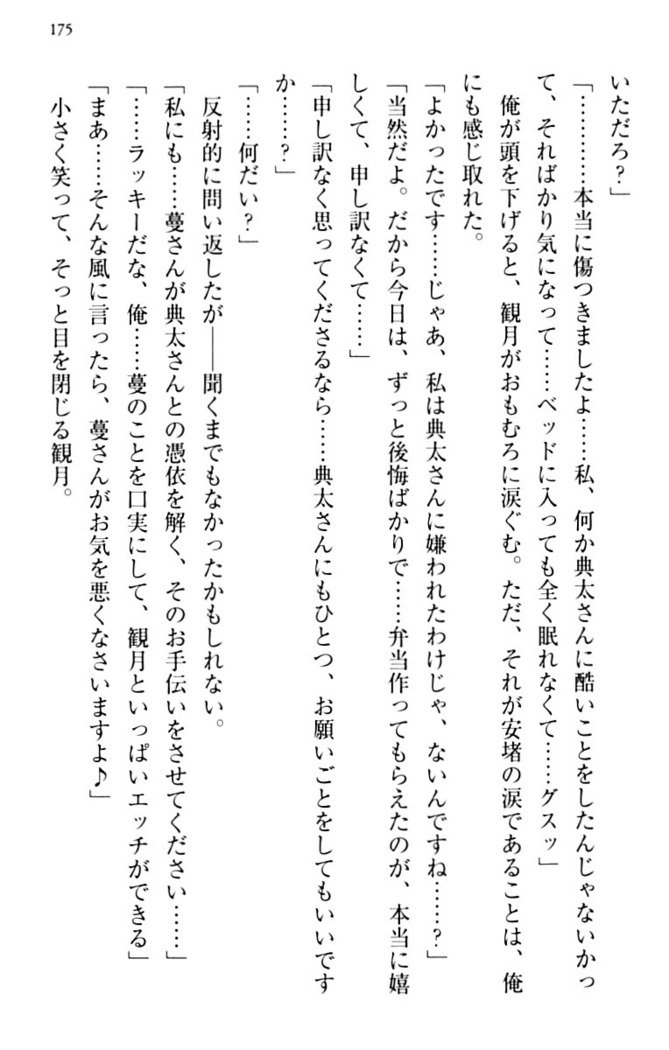 175
いただろ？」
「…………本当に傷つきましたよ……私、何か典太さんに酷いことをしたんじゃないかっ
て、そればかり気になって……ベッドに入っても全く眠れなくて……グスッ」
俺が頭を下げると、観月がおもむろに涙ぐむ。ただ、それが安堵の涙であることは、俺
にも感じ取れた。
「よかったです……じゃあ、私は典太さんに嫌われたわけじゃ、ないんですね……？」
「当然だよ。だから今日は、ずっと後悔ばかりで……弁当作ってもらえたのが、本当に嬉
しくて、申し訳なくて……」
「申し訳なく思ってくださるなら……典太さんにもひとつ、お願いごとをしてもいいです
か……？」
「……何だい？」
反射的に問い返したが――聞くまでもなかったかもしれない。
「私にも……蔓さんが典太さんとの憑依を解く、そのお手伝いをさせてください……」
「……ラッキーだな、俺……蔓のことを口実にして、観月といっぱいエッチができる」
「まあ……そんな風に言ったら、蔓さんがお気を悪くなさいますよ♪」
小さく笑って、そっと目を閉じる観月。